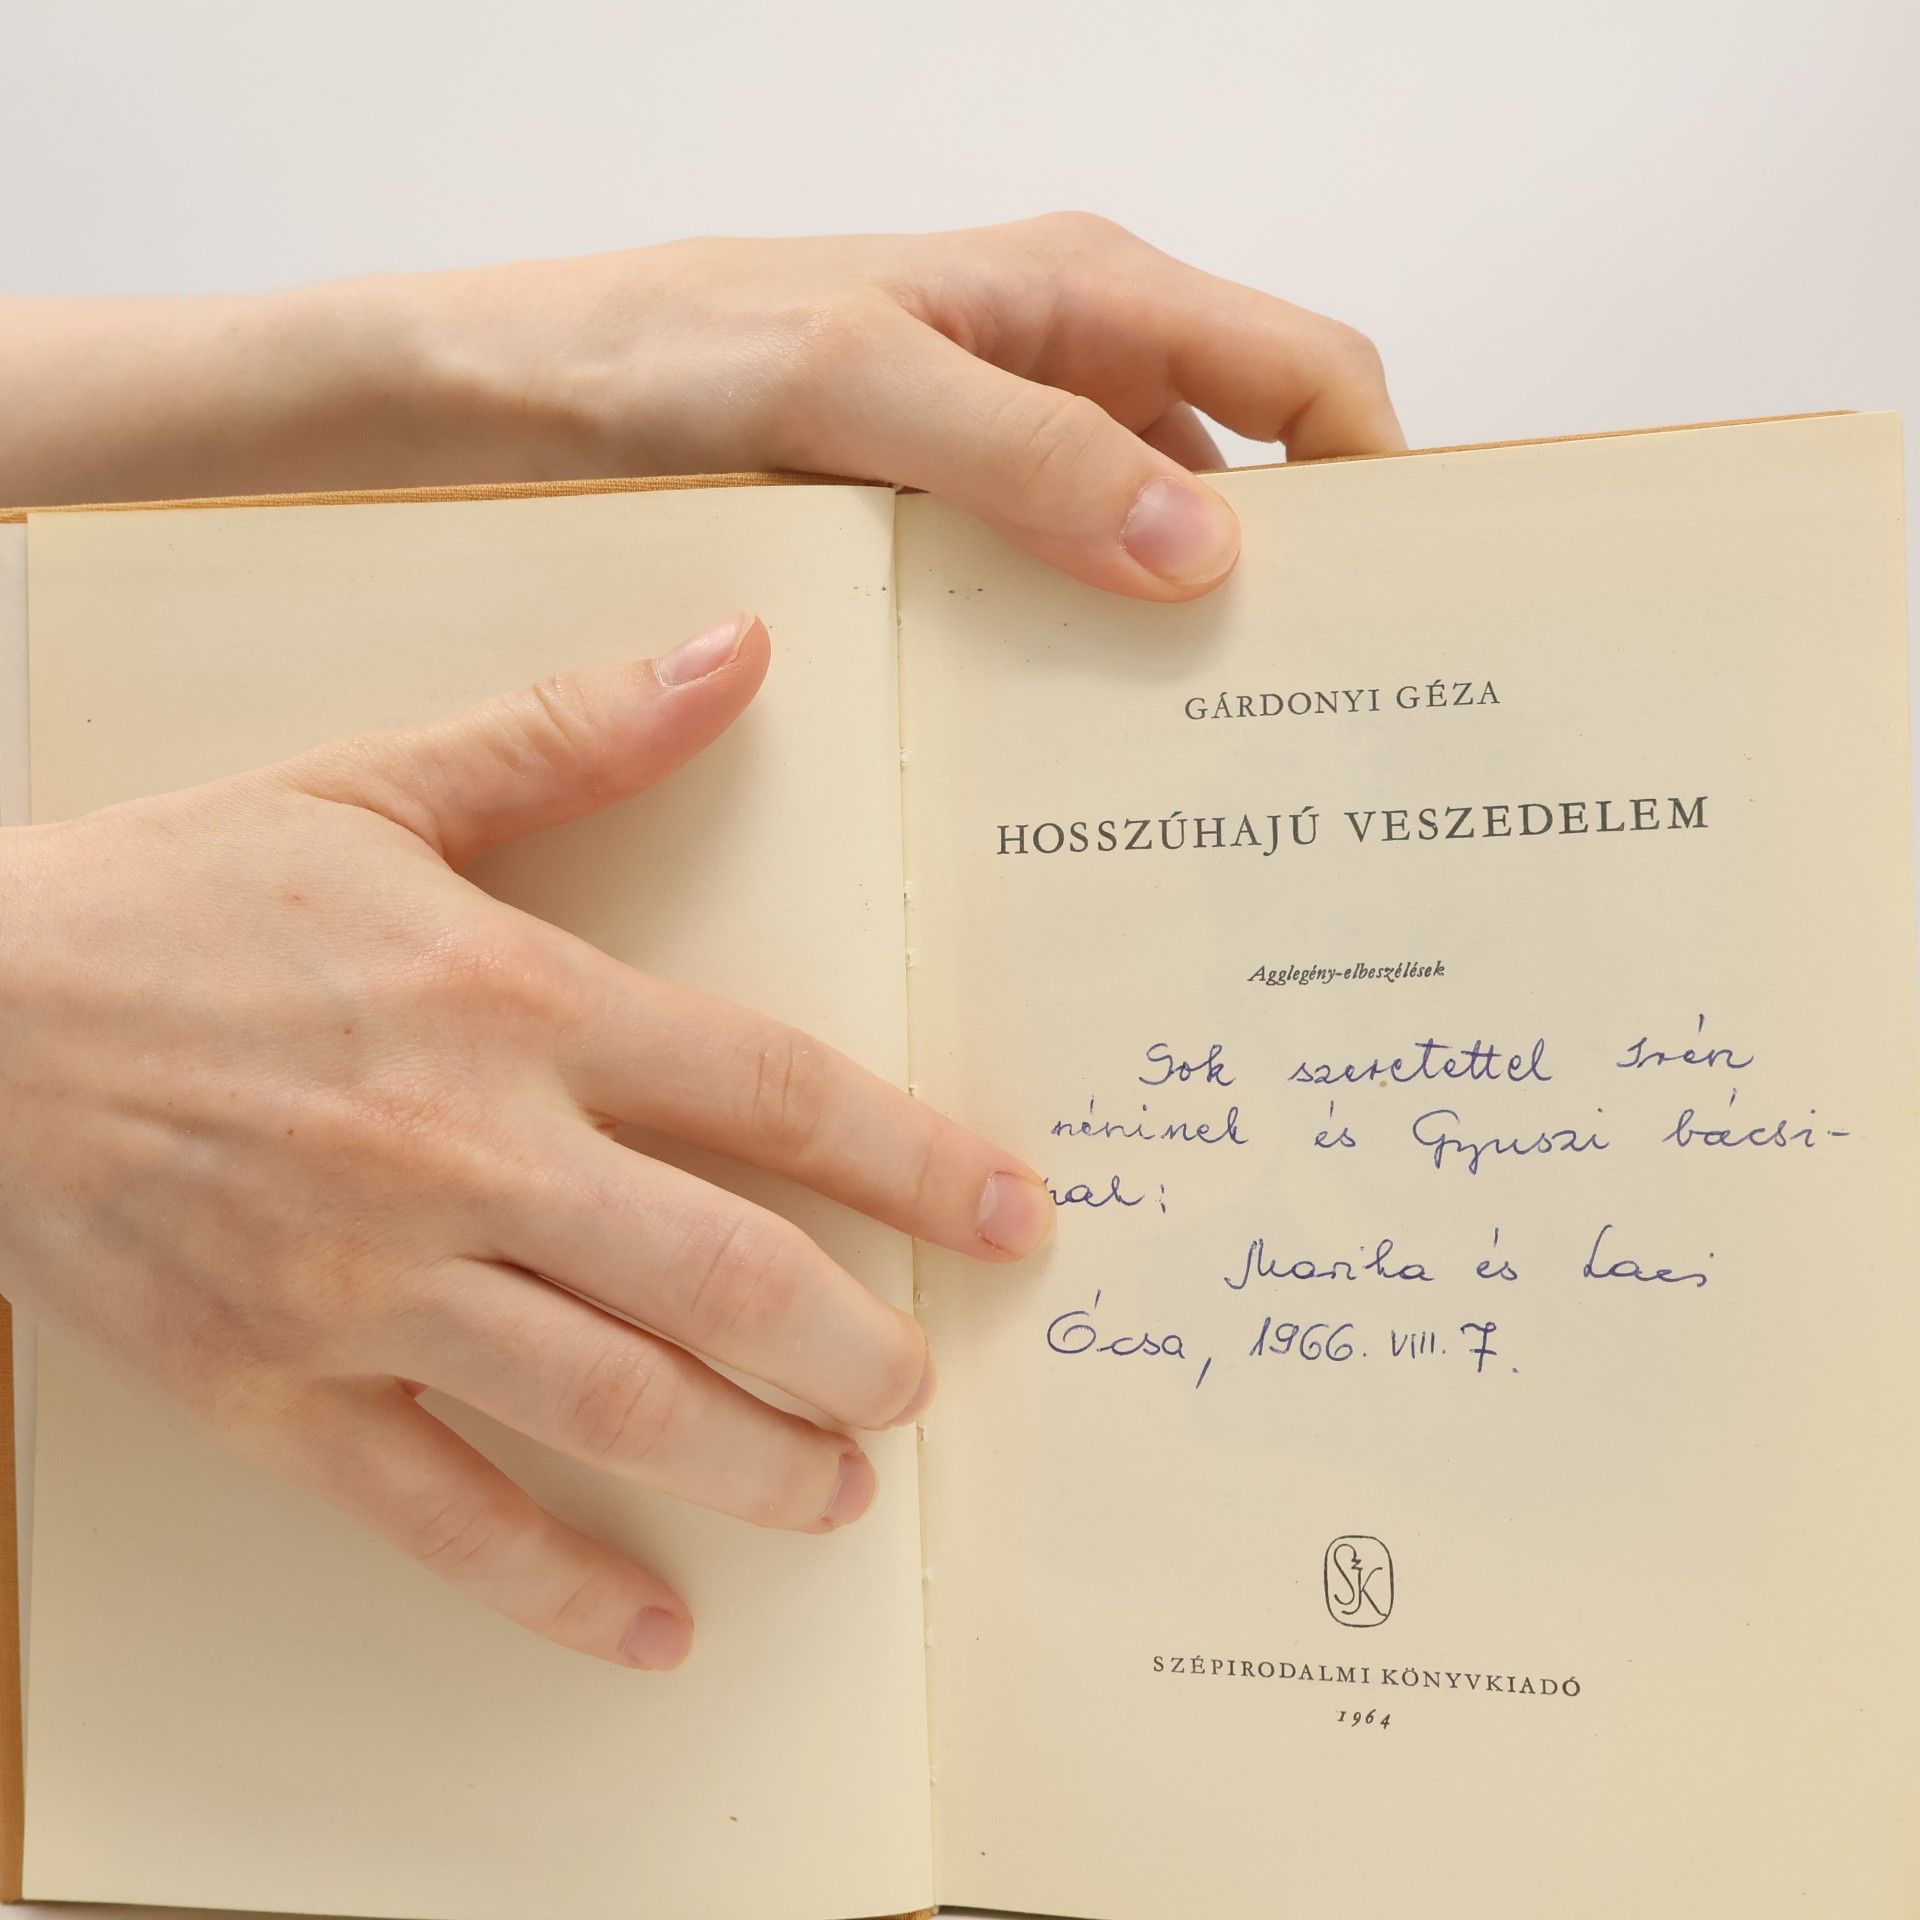 GÁRDONYI GÉZA
HOSSZÚHAJÚ VESZEDELEM
Agglegény-elbeszélések
Sok szeretettel Irén
néninek és Gyuszi bácsi-
nak:
Marika és Laci
Ócsa, 1966. VIII. 7.
SzK
SZÉPIRODALMI KÖNYVKIADÓ
1964